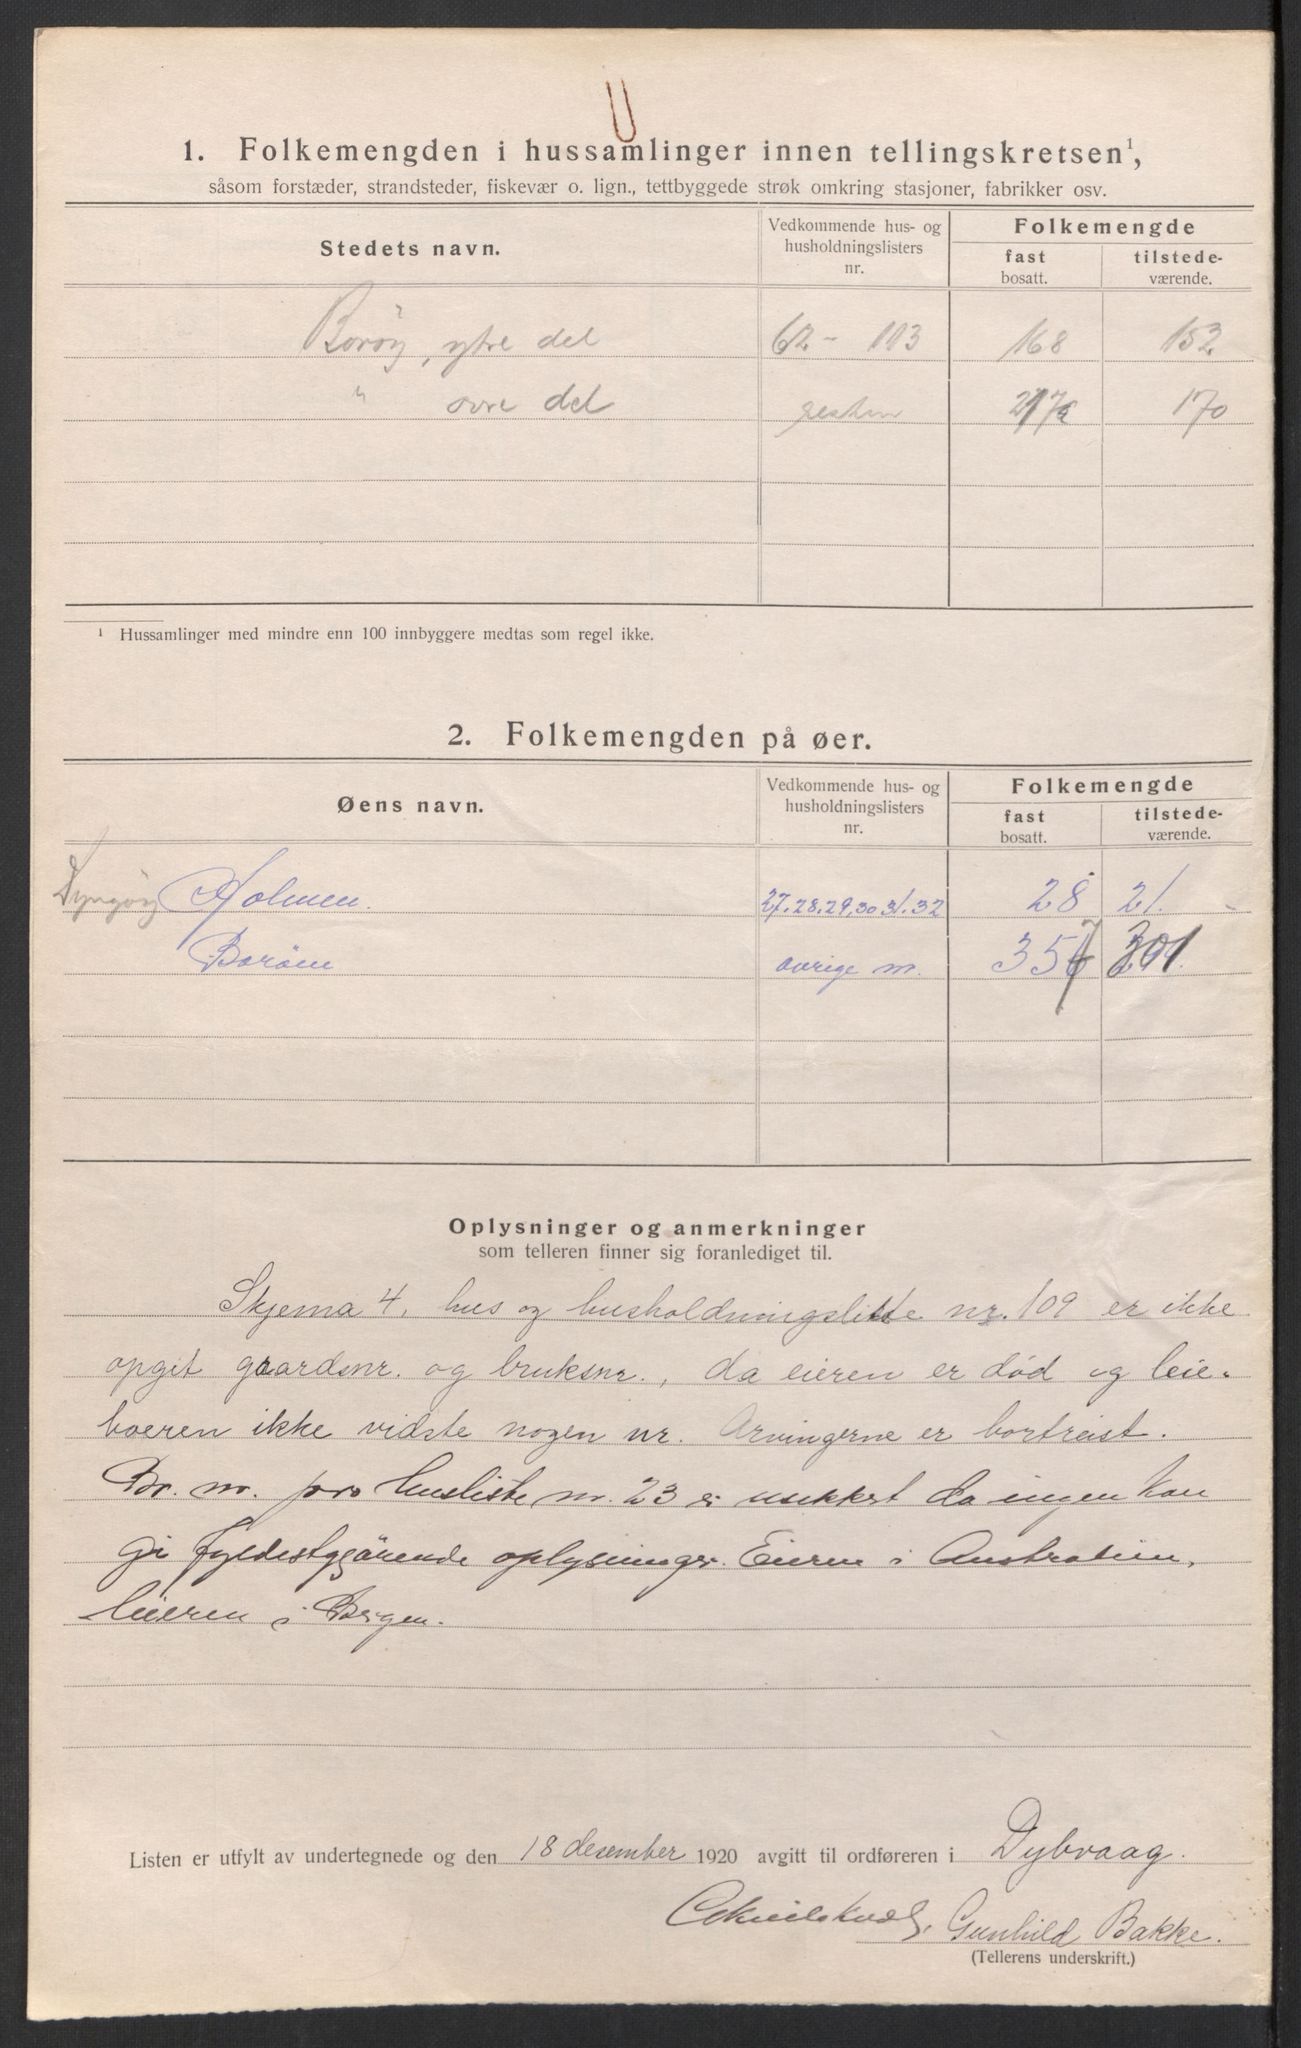 1. Folkemengden i hussamlinger innen tellingskretsen¹,
såsom forstæder, strandsteder, fiskevær o. lign., tettbyggede strøk omkring stasjoner, fabrikker osv.
Stedets navn.
Vedkommende hus- og husholdningslisters nr.
Folkemengde
fast bosatt.
tilstede-værende.
Borøy, ytre del 62 - 103 168 153
" øvre del resten 170
¹ Hussamlinger med mindre enn 100 innbyggere medtas som regel ikke.
2. Folkemengden på øer.
Øens navn.
Vedkommende hus- og husholdningslisters nr.
Folkemengde
fast bosatt.
tilstede-værende.
Lyngør Holmen. 27.28.29.30.31.32 28 21.
Borøen øvrige nr. 357 301
Oplysninger og anmerkninger
som telleren finner sig foranlediget til.
Skjema 4, hus og husholdningsliste nr. 109 er ikke
opgit gaardsnr. og bruksnr., da eieren er død og leie-
boeren ikke vidste nogen nr. Arvingerne er bortreist.
Br. nr. for Husliste nr. 23 er usikkert da ingen kan
gi fyldestgjørende oplysninger. Eieren i Australien,
leieren i Bergen.
Listen er utfylt av undertegnede og den 18 desember 1920 avgitt til ordføreren i Dybvaag.
Gunhild Bakke.
(Tellerens underskrift.)